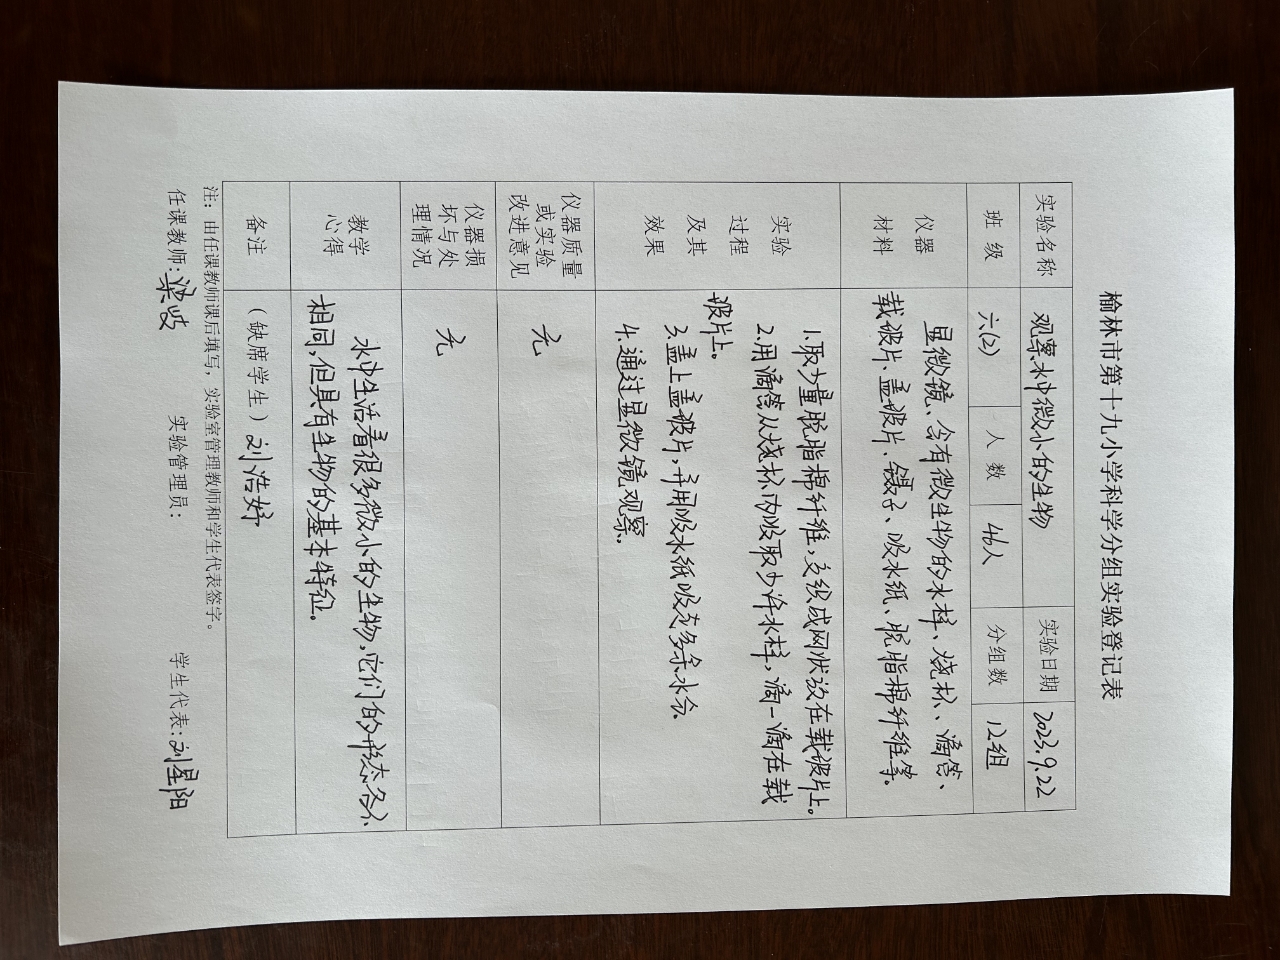 榆林市第十九小学科学分组实验登记表
实验名称 观察水中微小的生物 实验日期 2023.9.22
班级 六(2) 人数 46人 分组数 12组
仪器
材料
显微镜、含有微生物的水样、烧杯、滴管、
载玻片、盖玻片、镊子、吸水纸、脱脂棉纤维等。
实验
过程
及其
效果
1.取少量脱脂棉纤维,交织成网状放在载玻片上。
2.用滴管从烧杯内吸取少许水样,滴一滴在载
玻片上。
3.盖上盖玻片,并用吸水纸吸走多余水分。
4.通过显微镜观察。
仪器质量
或实验
改进意见
无
仪器损
坏与处
理情况
无
教学
心得
水中生活着很多微小的生物,它们的形态各不
相同,但具有生物的基本特征。
备注 (缺席学生)刘浩好
注:由任课教师课后填写,实验室管理教师和学生代表签字。
任课教师:梁岐 实验管理员: 学生代表:刘星阳